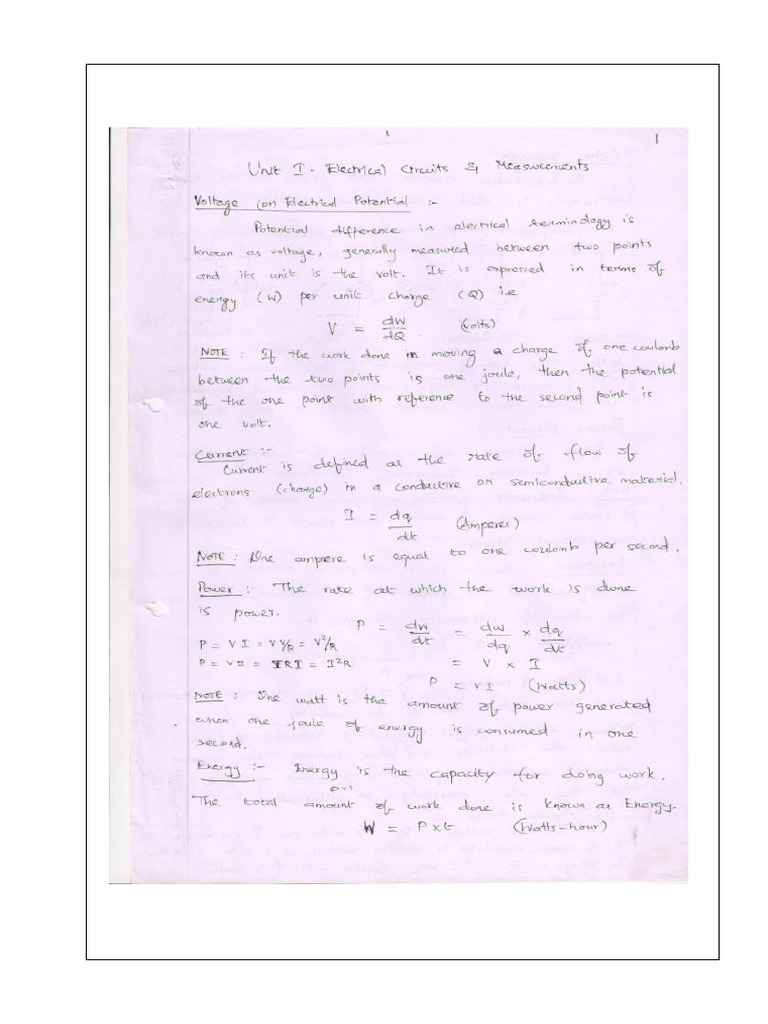 1
Unit I - Electrical Circuits & Measurements
Voltage (or) Electrical Potential :-
Potential difference in electrical terminology is
known as voltage, generally measured between two points
and its unit is the volt. It is expressed in terms of
energy (W) per unit charge (Q) i.e
V = dW/dQ (volts)
NOTE : If the work done in moving a charge of one coulomb
between the two points is one joule, then the potential
of the one point with reference to the second point is
one volt.
Current :-
Current is defined as the rate of flow of
electrons (charge) in a conductive or semiconductive material.
I = dq/dt (Amperes)
NOTE : One ampere is equal to one coulomb per second.
Power :- The rate at which the work is done
is power.
P = dW/dt = dw/dq × dq/dt
P = VI = V V/R = V²/R
P = VI = IRI = I²R
= V × I
P = VI (Watts)
NOTE : One watt is the amount of power generated
when one joule of energy is consumed in one
second.
Energy :- Energy is the capacity for doing work.
The total amount of work done is known as Energy.
W = P×t (Watts-hour)